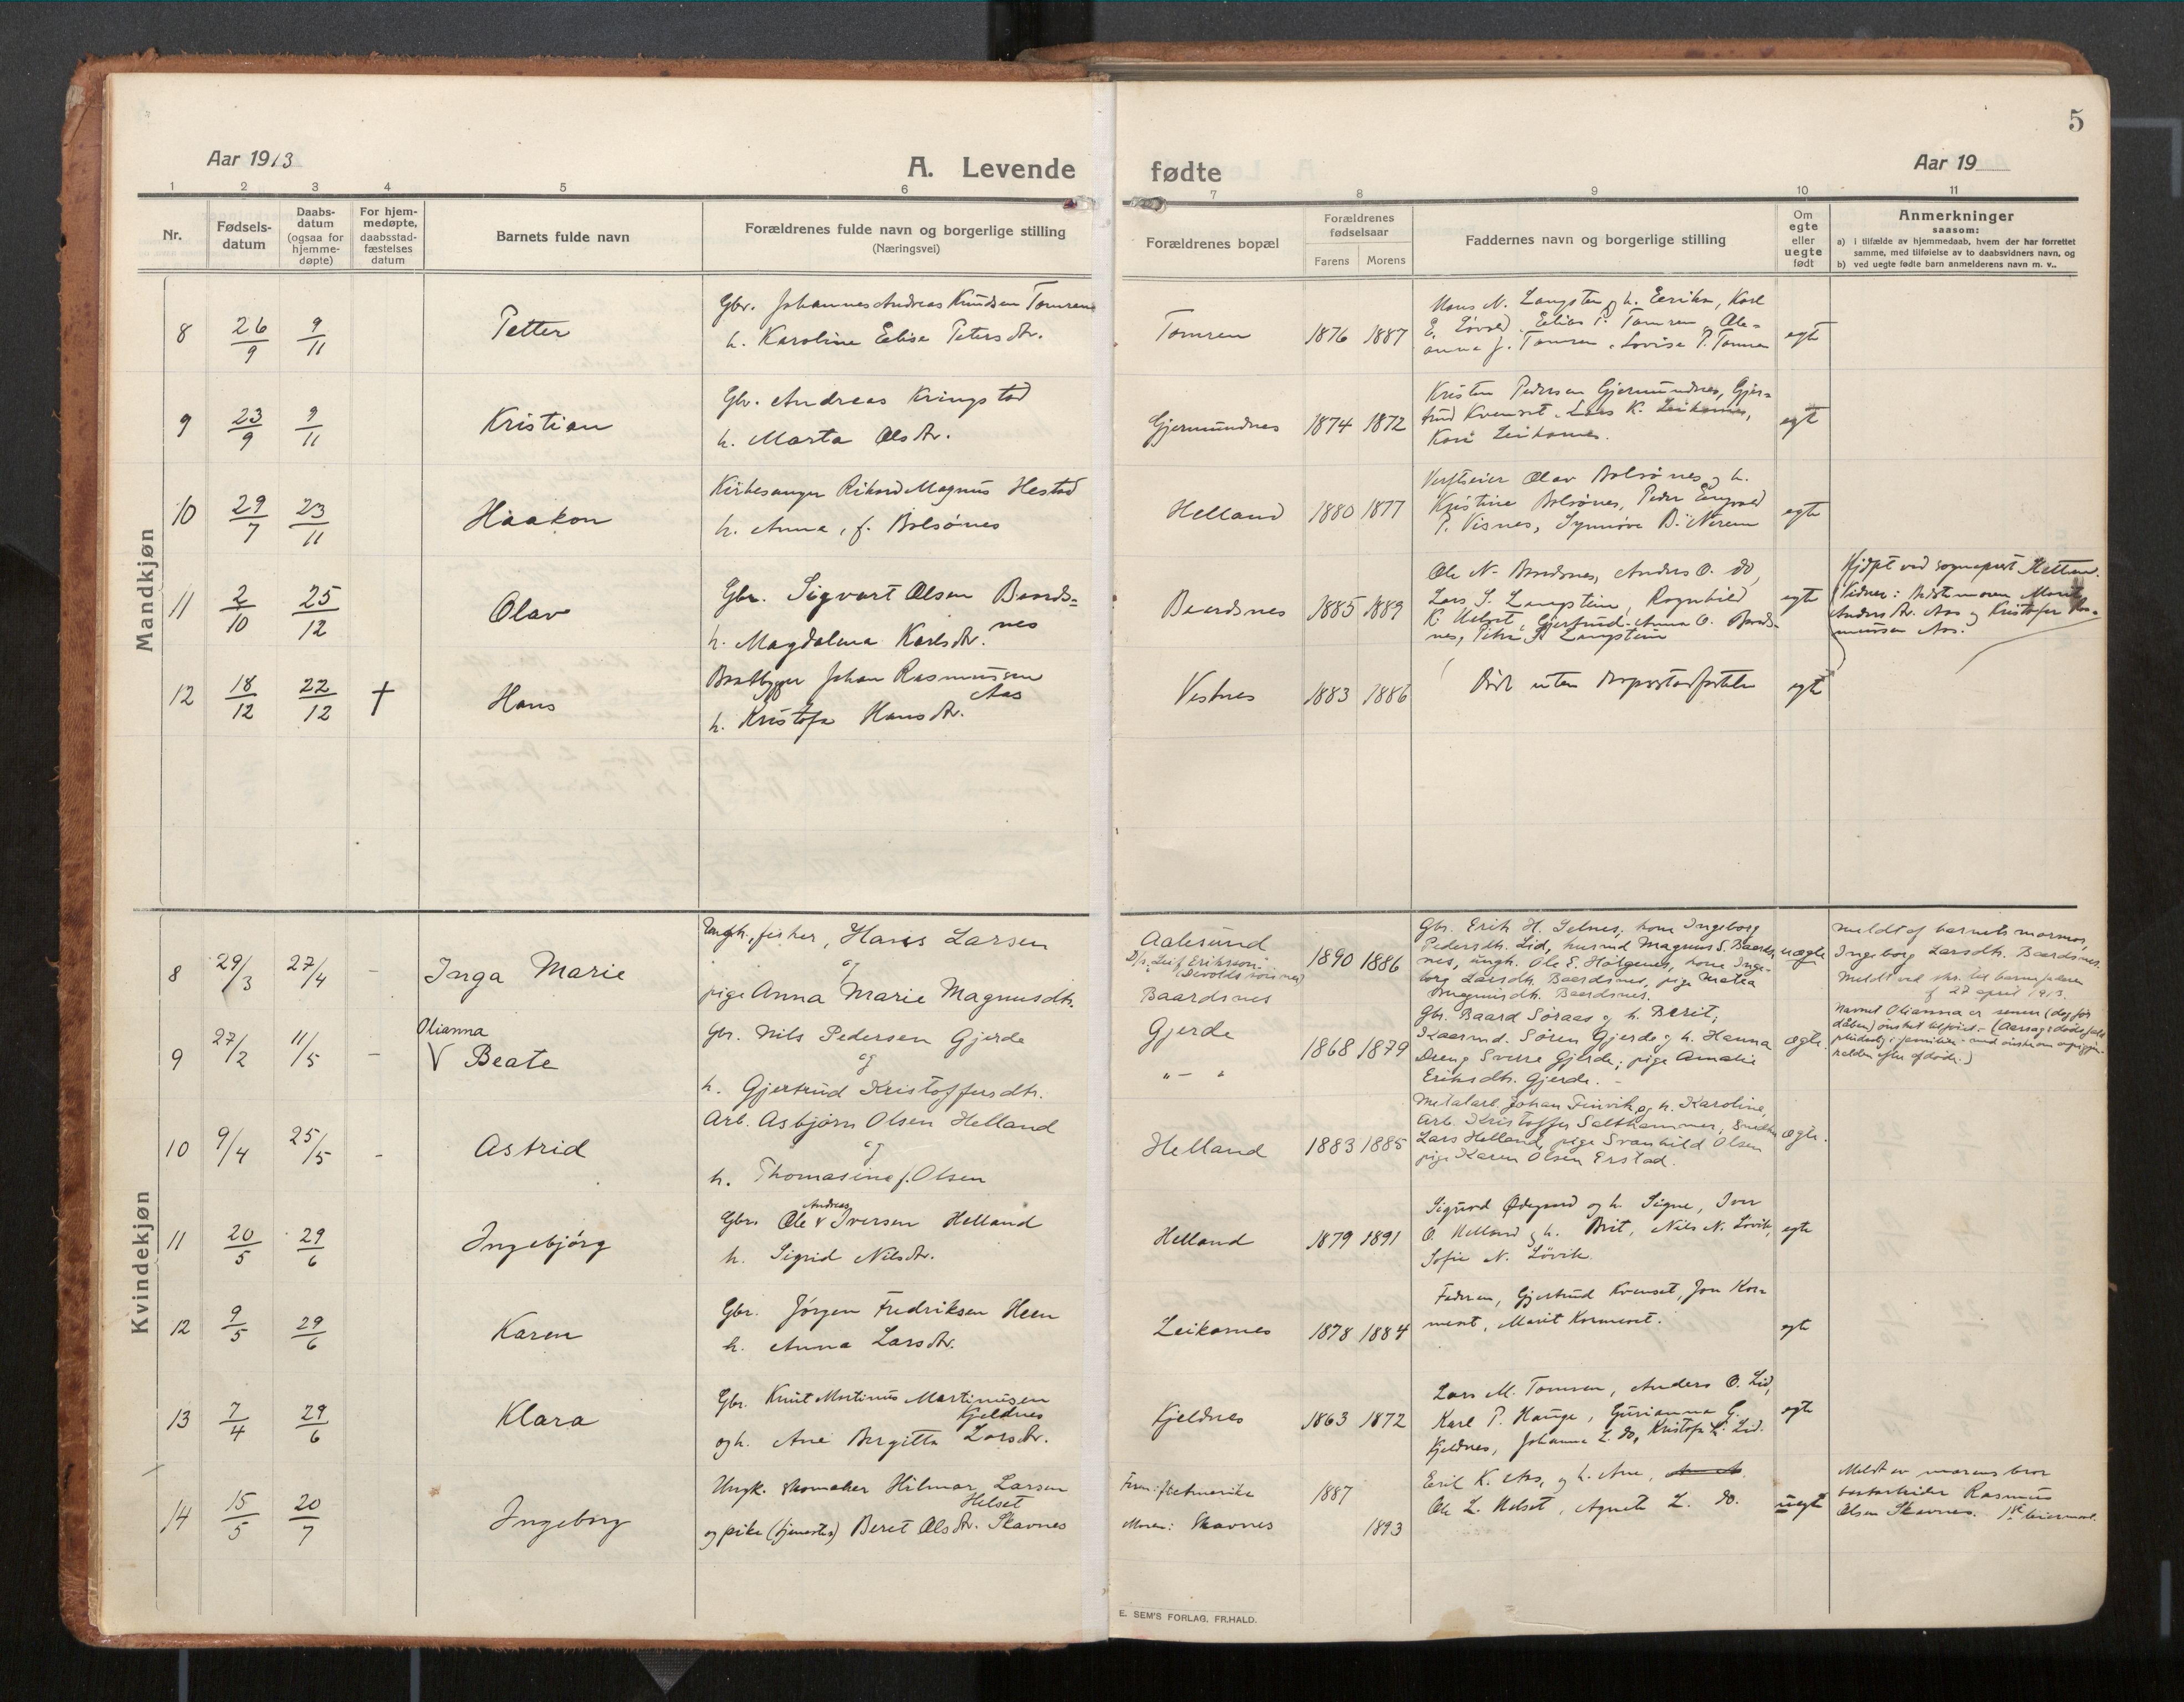 5
Aar 1913
A. Levende fødte
Aar 19
1 2 3 4 5 6 7 8 9 10 11
Nr.
Fødsels-
datum
Daabs-
datum
(ogsaa for
hjemme-
døpte)
For hjem-
medøpte,
daabsstad-
fæstelses
datum
Barnets fulde navn
Forældrenes fulde navn og borgerlige stilling
(Næringsvei)
Forældrenes bopæl
Forældrenes
fødselsaar
Farens Morens
Faddernes navn og borgerlige stilling
Om
egte
eller
uegte
født
Anmerkninger
saasom:
a) i tilfælde av hjemmedaab, hvem der har forrettet
samme, med tilføielse av to daabsvidners navn, og
b) ved uegte fødte barn anmelderens navn m. v..
Mandkjøn
8 26/9 9/11 Petter
Gbr. Johannes Andreas Knudsen Tomren
h. Karoline Elise Petersdtr.
Tomren 1876 1887
Hans N. Langsten og h. Eerika, Karl
E. Løvold, Elias P. Tomren, Ole-
anna J. Tomren, Lovise P. Tomren
egte
9 23/9 9/11 Kristian
Gbr. Andreas Kringstad
h. Marta Olsdtr.
Gjermundnes 1874 1872
Kristen Pedersen Gjermundnes, Gjer-
trud Kvenset, Lars K. Leikarnes,
Kari Leikarnes.
egte
10 29/7 23/11 Haakon
Kirkesanger Rikard Magnus Hestad
h. Anna, f. Bolsønes
Helland 1880 1877
Verfteier Olav Bolsønes og h.
Kristine Bolsønes, Peder Engvald
P. Visnes, Synnøve B. Nerem
egte
11 2/10 25/12 Olav
Gbr. Sigvart Olsen Baards-
nes
h. Magdalena Karlsdtr.
Baardsnes 1885 1889
Ole N. Baardsnes, Anders O. do,
Lars S. Langstein, Ragnhild
K. Helset, Gjertrud Anna O. Baards-
nes, Petra Langstein
egte
Hjdøpt ved sogneprest
Vidner: Marit
Andersdtr. Aas og Kristofer Ras-
mussen Aas.
12 18/12 22/12 † Hans
Johan Rasmussen
Aas
h. Kristofa Hansdtr.
Vestnes 1883 1886
Død uten
egte
Kvindekjøn
8 29/3 27/4 - Inga Marie
Ungk., fisker, Hans Larsen
og
pige Anna Marie Magnusdtr.
Aalesund
D/s. Leif Erikson
Baardsnes
1890 1886
Gbr. Erik H. Selnes, kone Ingeborg
Pedersdtr. Lid, husmd Magnus S. Baards-
nes, ungk. Ole E. Hølgenes, kone Inge-
borg Larsdtr. Baardsnes, pige Matea
Magnusdtr. Baardsnes.
uægte
Meldt af barnets mormor,
Ingeborg Larsdtr. Baardsnes.
Meldt ved
af 27 april 1913.
9 27/2 11/5 -
Olianna
V Beate
Gbr. Nils Pedersen Gjerde
og
h. Gjertrud Kristoffersdtr.
Gjerde
" — "
1868 1879
Gbr. Baard Søraas og h. Berit;
Kaarmd. Søren Gjerde og h. Hanna
Dreng Sverre Gjerde; pige Amalie
Eriksdtr. Gjerde. -
ægte.
Navnet Olianna er senere (dog før
dåben) ønsket tilføiet.-
10 9/4 25/5 - Astrid
Arb. Asbjørn Olsen Helland
og
h. Thomasine f. Olsen
Helland 1883 1885
Metalarb. Johan Finvik og h. Karoline,
Arb. Kristoffer Saltkammer, Snedker
Lars Helland, pige Svanhild Olsen
pige Karen Olsen Erstad.
ægte.
11 20/5 29/6 Ingebjørg
Andreas
Gbr. Ole v Iversen Helland
h. Sigrid Nilsdtr.
Helland 1879 1891
Sigurd Ødegaard og h. Signe, Iver
O. Helland og h. Brit, Nils N. Løvik,
Sofie N. Løvik.
egte
12 9/5 29/6 Karen
Gbr. Jørgen Fredriksen Heen
h. Anna Larsdtr.
Leikarnes 1878 1884
Faderen, Gjertrud Kvenset, Jon Kor-
meset, Marit Kormeset.
egte
13 7/4 29/6 Klara
Gbr. Knut Martinus Martinusen
Kjeldnes
og h. Ane Bergitta Larsdtr.
Kjeldnes 1863 1872
Lars M. Tomren, Anders O. Lid,
Karl P. Hauge, Gurianna G.
Kjeldnes, Johanna L. do, Kristofa L. Lid.
egte
14 15/5 20/7 Ingeborg
Ungk. skomaker Hilmar Larsen
Helset
og pike (tjenestes) Beret Olsdtr. Skavnes
Faren: Amerika 1887
Moren: Skavnes 1893
Erik K. Aas, og h. Ane,
Ole L. Helset, Agnete L. do.
uegte
Meldt av morens bror
Rasmus
Olsen Skavnes. 1ste leiermaal.
E. SEM'S FORLAG, FR.HALD.